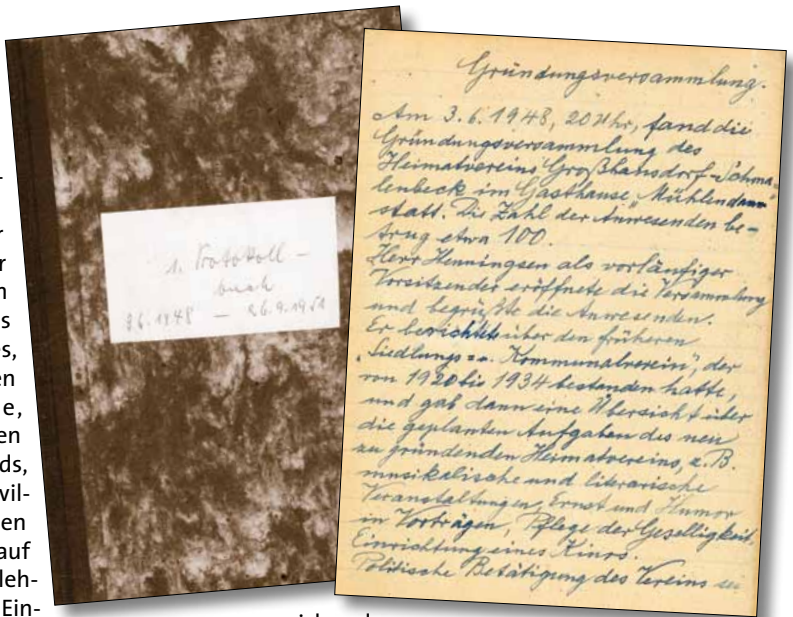 -
r
r
n
s
s,
en
e,
en
ds,
wil-
en
auf
leh-
Ein-
1. Protokoll-
buch
3.6.1948 — 26.9.1951
Gründungsversammlung.
Am 3.6.1948, 20 Uhr, fand die
Gründungsversammlung des
Heimatvereins Großhansdorf-Schma-
lenbeck im Gasthause „Mühlendamm“
statt. Die Zahl der Anwesenden be-
trug etwa 100.
Herr Henningsen als vorläufiger
Vorsitzender eröffnete die Versammlung
und begrüßte die Anwesenden.
Er berichtete über den früheren
„Siedlungs- u. Kommunalverein“, der
von 1920 bis 1934 bestanden hatte,
und gab dann eine Übersicht über
die geplanten Aufgaben des neu
zu gründenden Heimatvereins, z.B.
musikalische und literarische
Veranstaltungen, Ernst und Humor
in Vorträgen, Pflege der Geselligkeit,
Einrichtung eines Kinos.
Politische Betätigung des Vereins sei